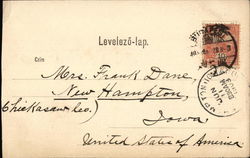 Levelező-lap.
Czim
Mrs. Frank Dane,
New Hampton,
(Chickasaw Co.)
Iowa
United States of America